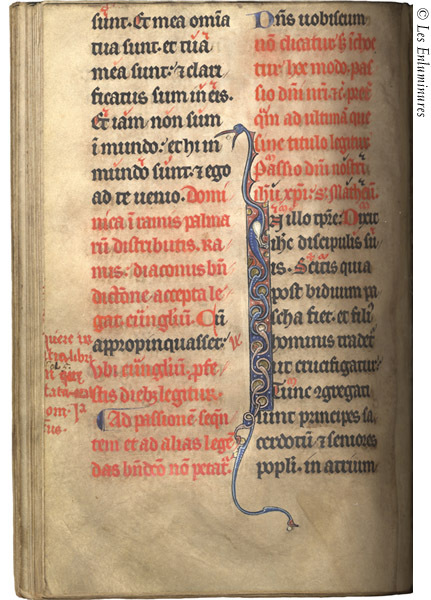 sunt. Et mea omīa
tua sunt. et tua
mea sunt. & clari
ficatus sum in eis.
Et iam non sum
ī mundo. et hi in
mundo sunt. & ego
ad te uenio. Domi
nica ī ramis palma
rū distributis. Ra
mis. diaconus bn̄
dictōne accepta le
gat eun̄gliū. Cū
appropinquasset.
vbi eun̄gliū.
stis dieb; legitur.
Ad passionē seqn̄
tem et ad alias legē
das bn̄dcō nō petat᷑.
Dn̄s uobiscum
nō dicatur s;
etur hoc modo. pas
sio dn̄i nr̄i
qm̄ ad ultimā que
sine titulo legitur
Passio dn̄i nostri
ih̄u xp̄i. s. Matheū.
In illo tp̄re. Dixit
ih̄c discipulis su
is. Scitis quia
post biduum pa
scha fiet. et fili᷒
hominis tradet᷑
ut crucifigatur
Tunc ꝯgregati
sunt principes sa
cerdotū. & seniores
popl̄i. in atrium
© Les Enluminures